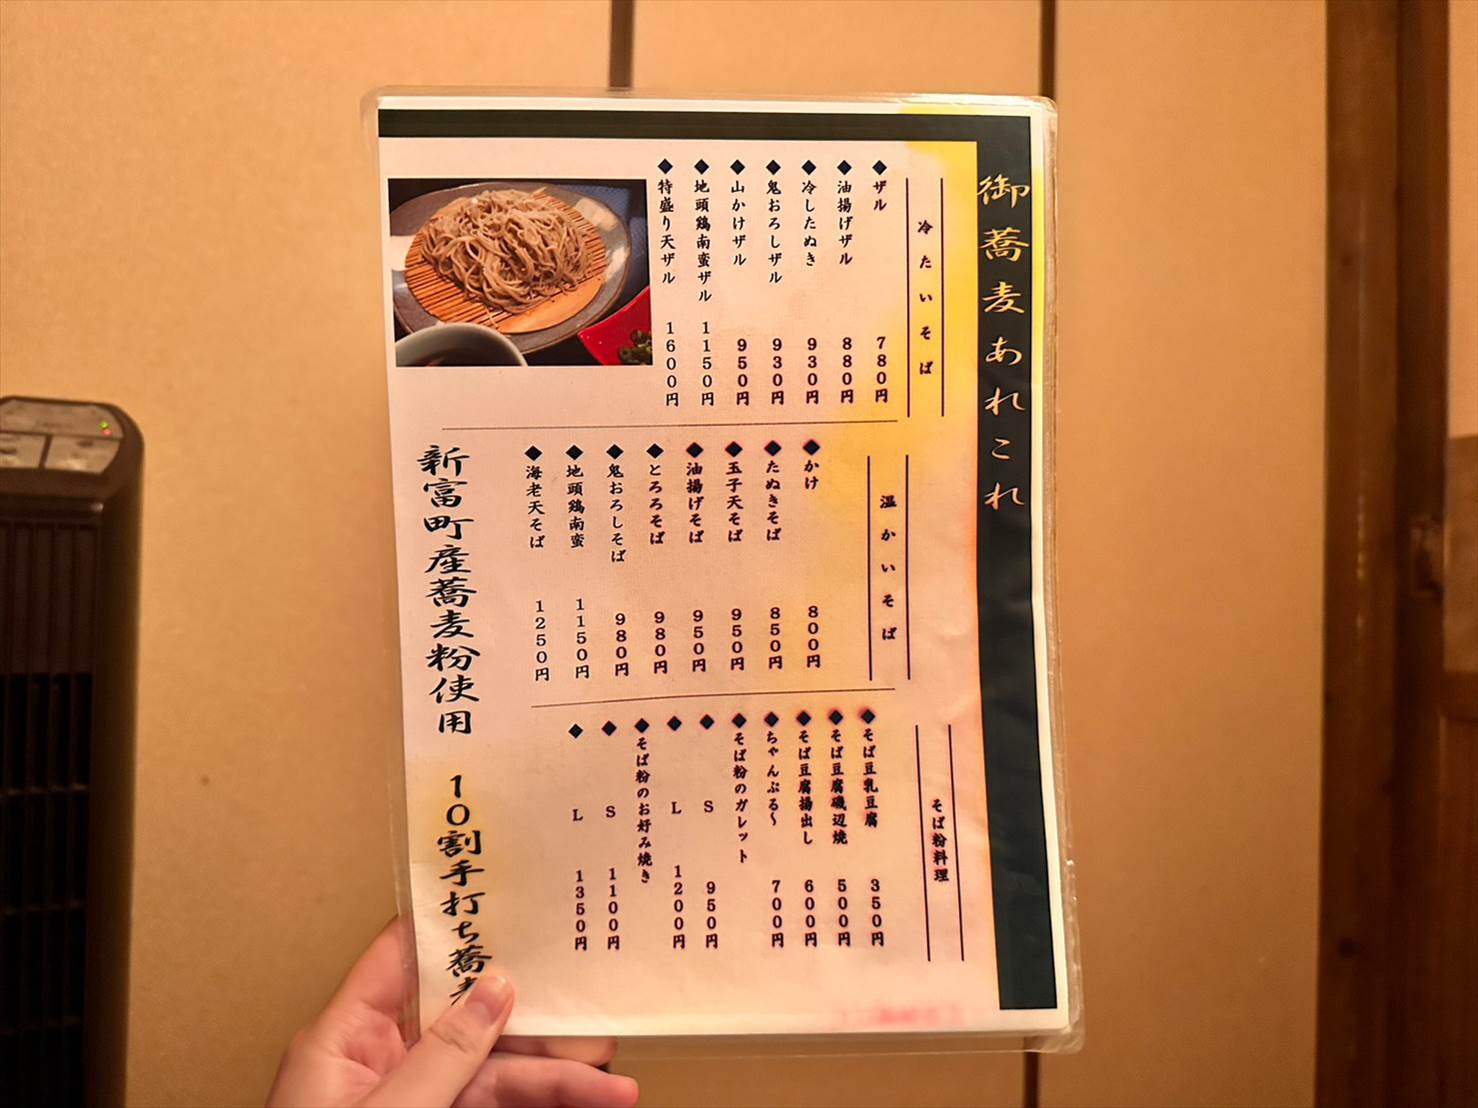 御蕎麦あれこれ
冷たいそば
◆ザル 780円
◆油揚げザル 880円
◆冷したぬき 930円
◆鬼おろしザル 930円
◆山かけザル 950円
◆地頭鶏南蛮ザル 1150円
◆特盛り天ザル 1600円
温かいそば
◆かけ 800円
◆たぬきそば 850円
◆玉子天そば 950円
◆油揚げそば 950円
◆とろろそば 980円
◆鬼おろしそば 980円
◆地頭鶏南蛮 1150円
◆海老天そば 1250円
そば粉料理
◆そば豆乳豆腐 350円
◆そば豆腐磯辺焼 500円
◆そば豆腐揚出し 600円
◆ちゃんぷる〜 700円
◆そば粉のガレット
◆ S 950円
◆ L 1200円
◆そば粉のお好み焼き
◆ S 1100円
◆ L 1350円
新富町産蕎麦粉使用 10割手打ち蕎麦